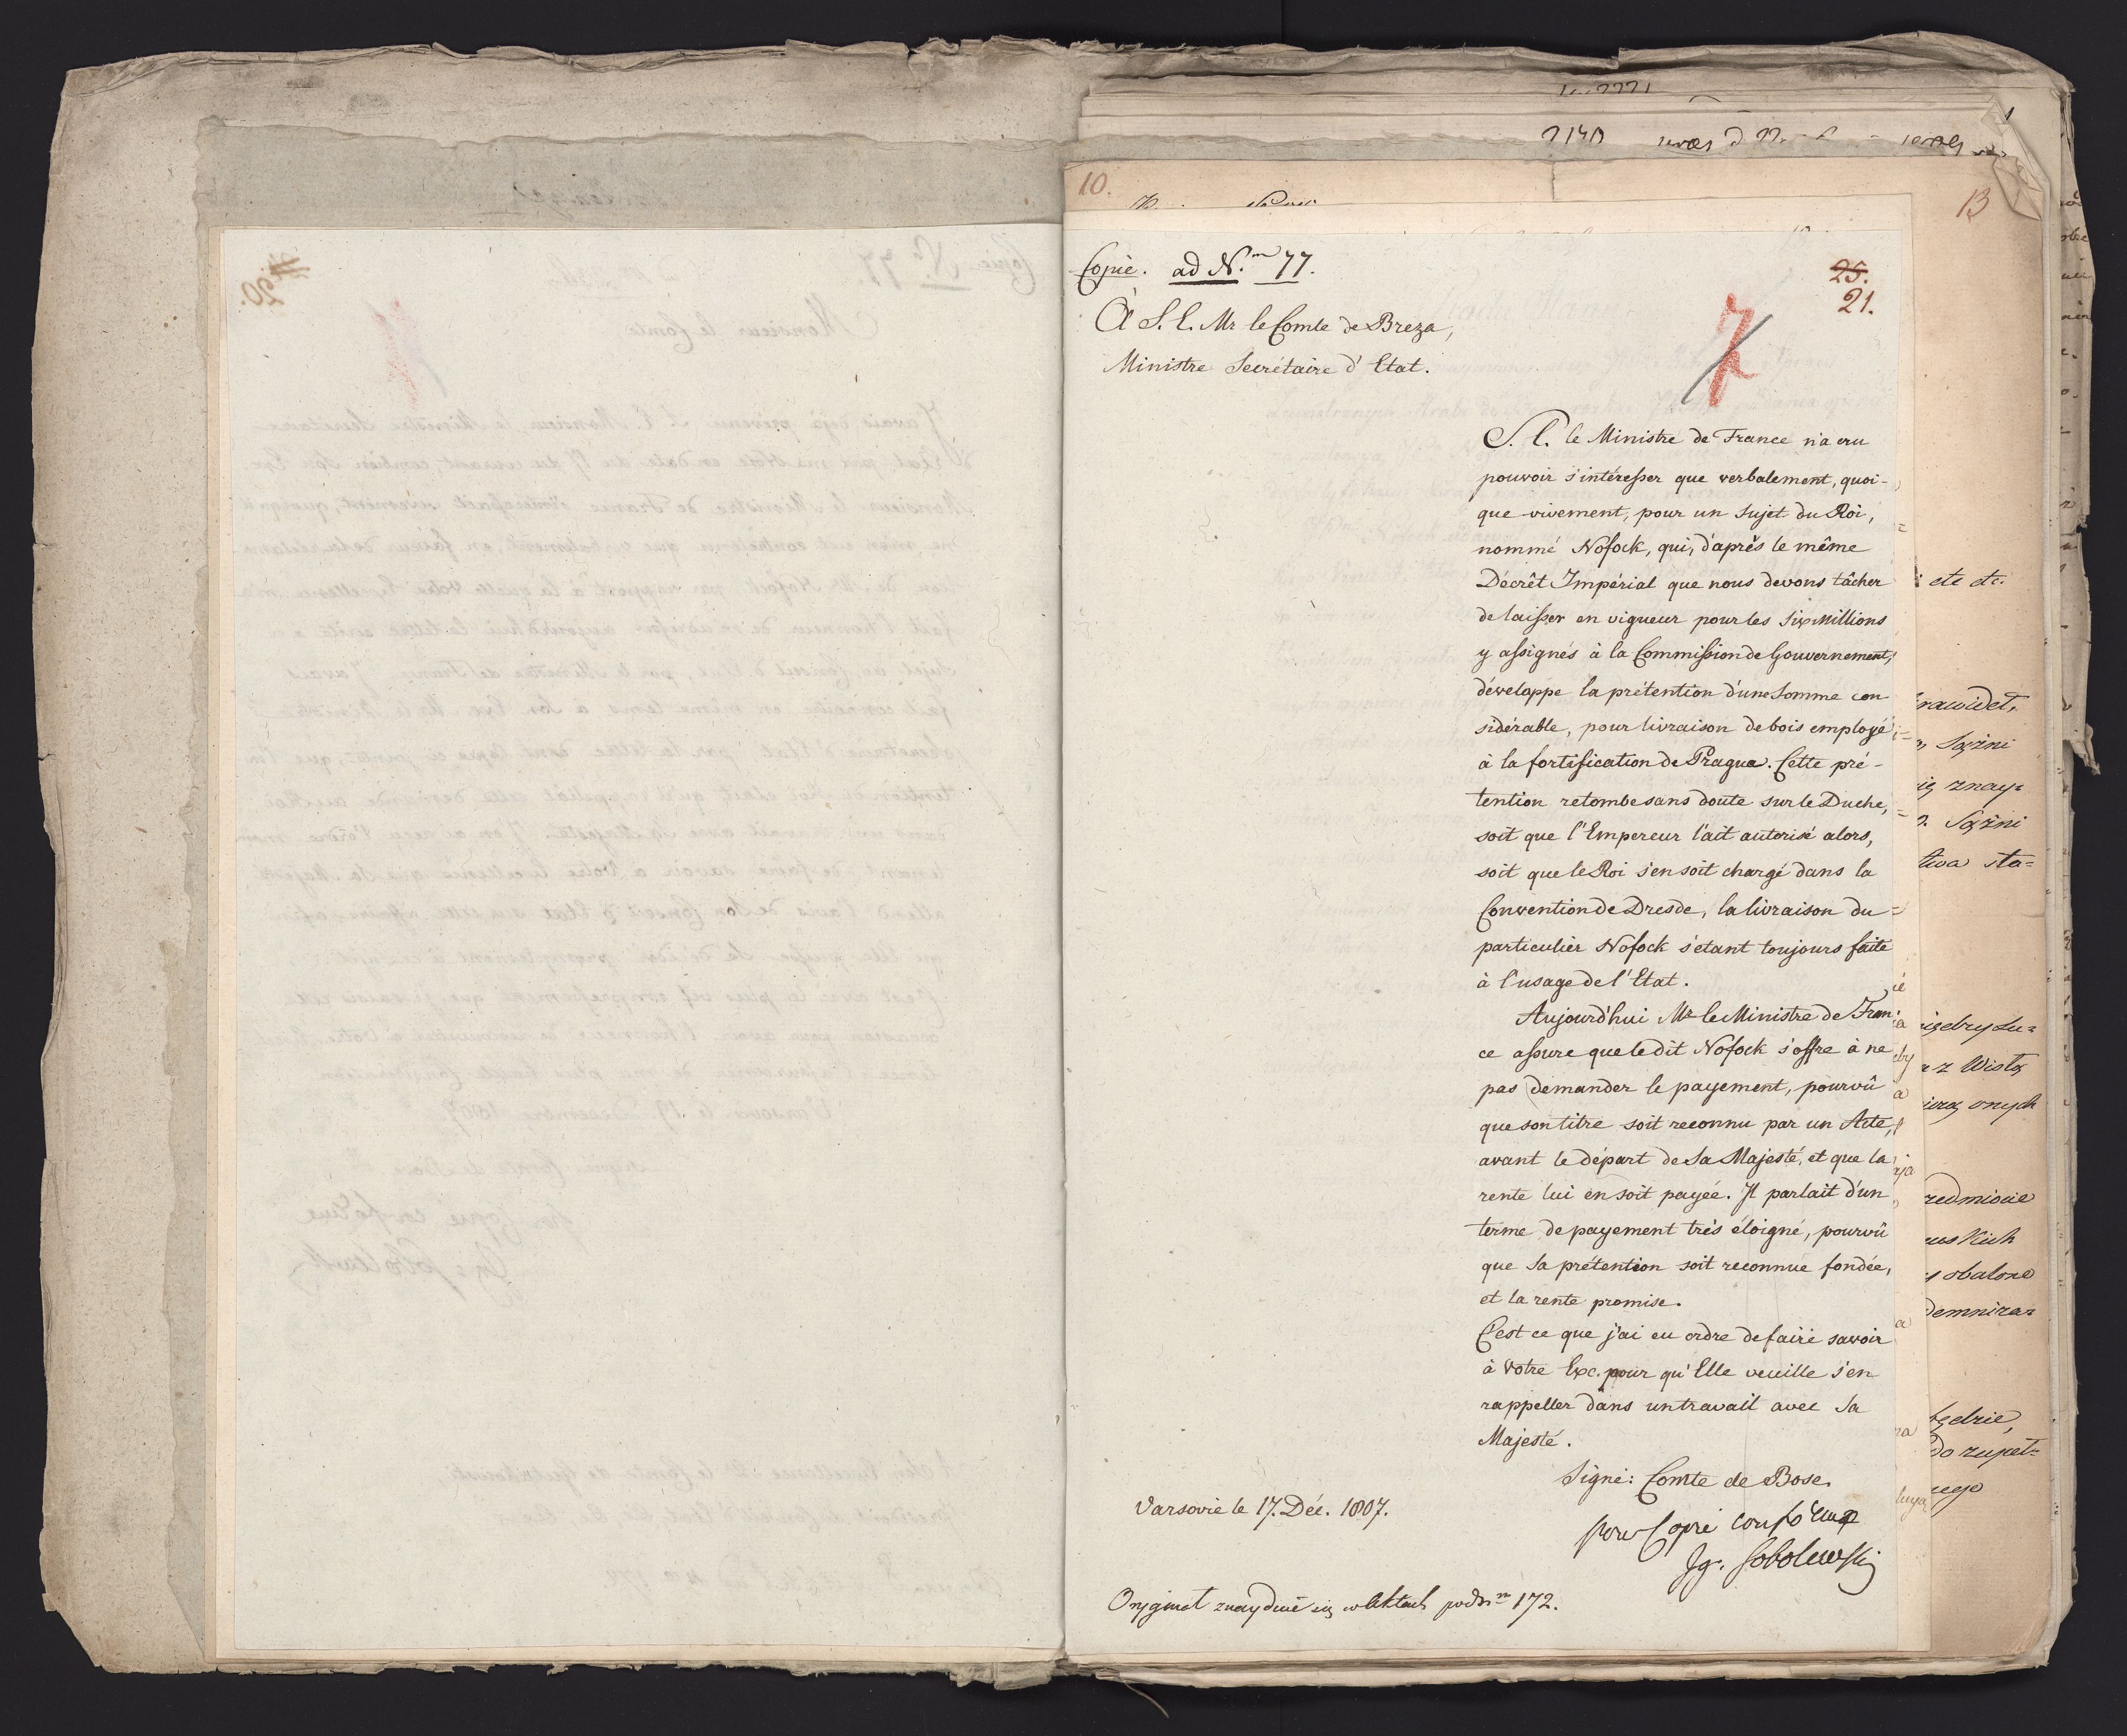 10.
13
Copie. ad N.m 77.
25.
21.
7
À S. E. Mr le Comte de Breza,
Ministre Secrétaire d'Etat.
S. E. le Ministre de France n'a cru
pouvoir s'intéresser que verbalement, quoi-
que vivement, pour un Sujet du Roi,
nommé Nofock, qui, d'après le même
Décrêt Impérial que nous devons tâcher
de laisser en vigueur pour les Six Millions
y assignés à la Commission de Gouvernement,
développe la prétention d'une Somme con
sidérable, pour livraison de bois employé
à la fortification de Pragua. Cette pré-
tention retombe sans doute sur le Duche,
soit que l'Empereur l'ait autorisé alors,
soit que le Roi s'en soit chargé dans la
Convention de Dresde, la livraison du
particulier Nofock s'etant toujours faite
à l'usage de l'Etat.
Aujourd'hui Mr le Ministre de Fran-
ce assure que le dit Nofock s'offre à ne
pas demander le payement, pourvû
que son titre soit reconnu par un Acte,
avant le départ de Sa Majesté, et que la
rente lui en soit payée. Il parlait d'un
terme de payement très éloigné, pourvû
que Sa prétention soit reconnue fondée,
et la rente promise.
C'est ce que j'ai eu ordre de faire savoir
à Votre Exc. pour qu'Elle veuille s'en
rappeller dans un travail avec Sa
Majesté.
Signé: Comte de Bose.
Varsovie le 17. Déc. 1807.
pour Copie conforme
Ig. Sobolewski
Oryginał znayduie się w Aktach pod Nm 172.
ete etc.
Sążni
ią znay=
Sążni
sta=
z Wisłą
onych
obalone
do zupeł=